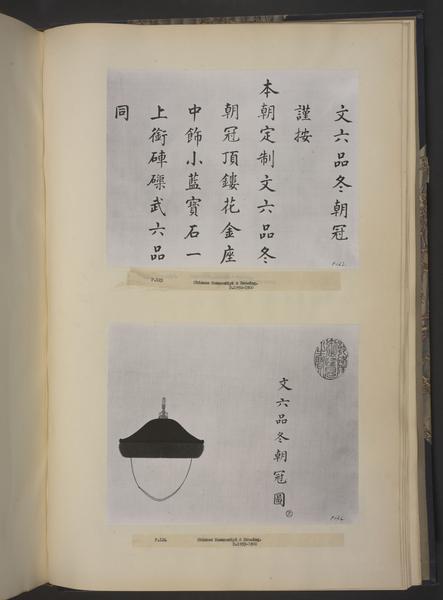 文六品冬朝冠
謹按
本朝定制文六品冬
朝冠頂鏤花金座
中飾小藍寶石一
上銜硨磲武六品
同
P.123
Chinese Manuscript & Drawing.
D.1959-1900
文六品冬朝冠圖
P.124
Chinese Manuscript & Drawing.
D.1959-1900